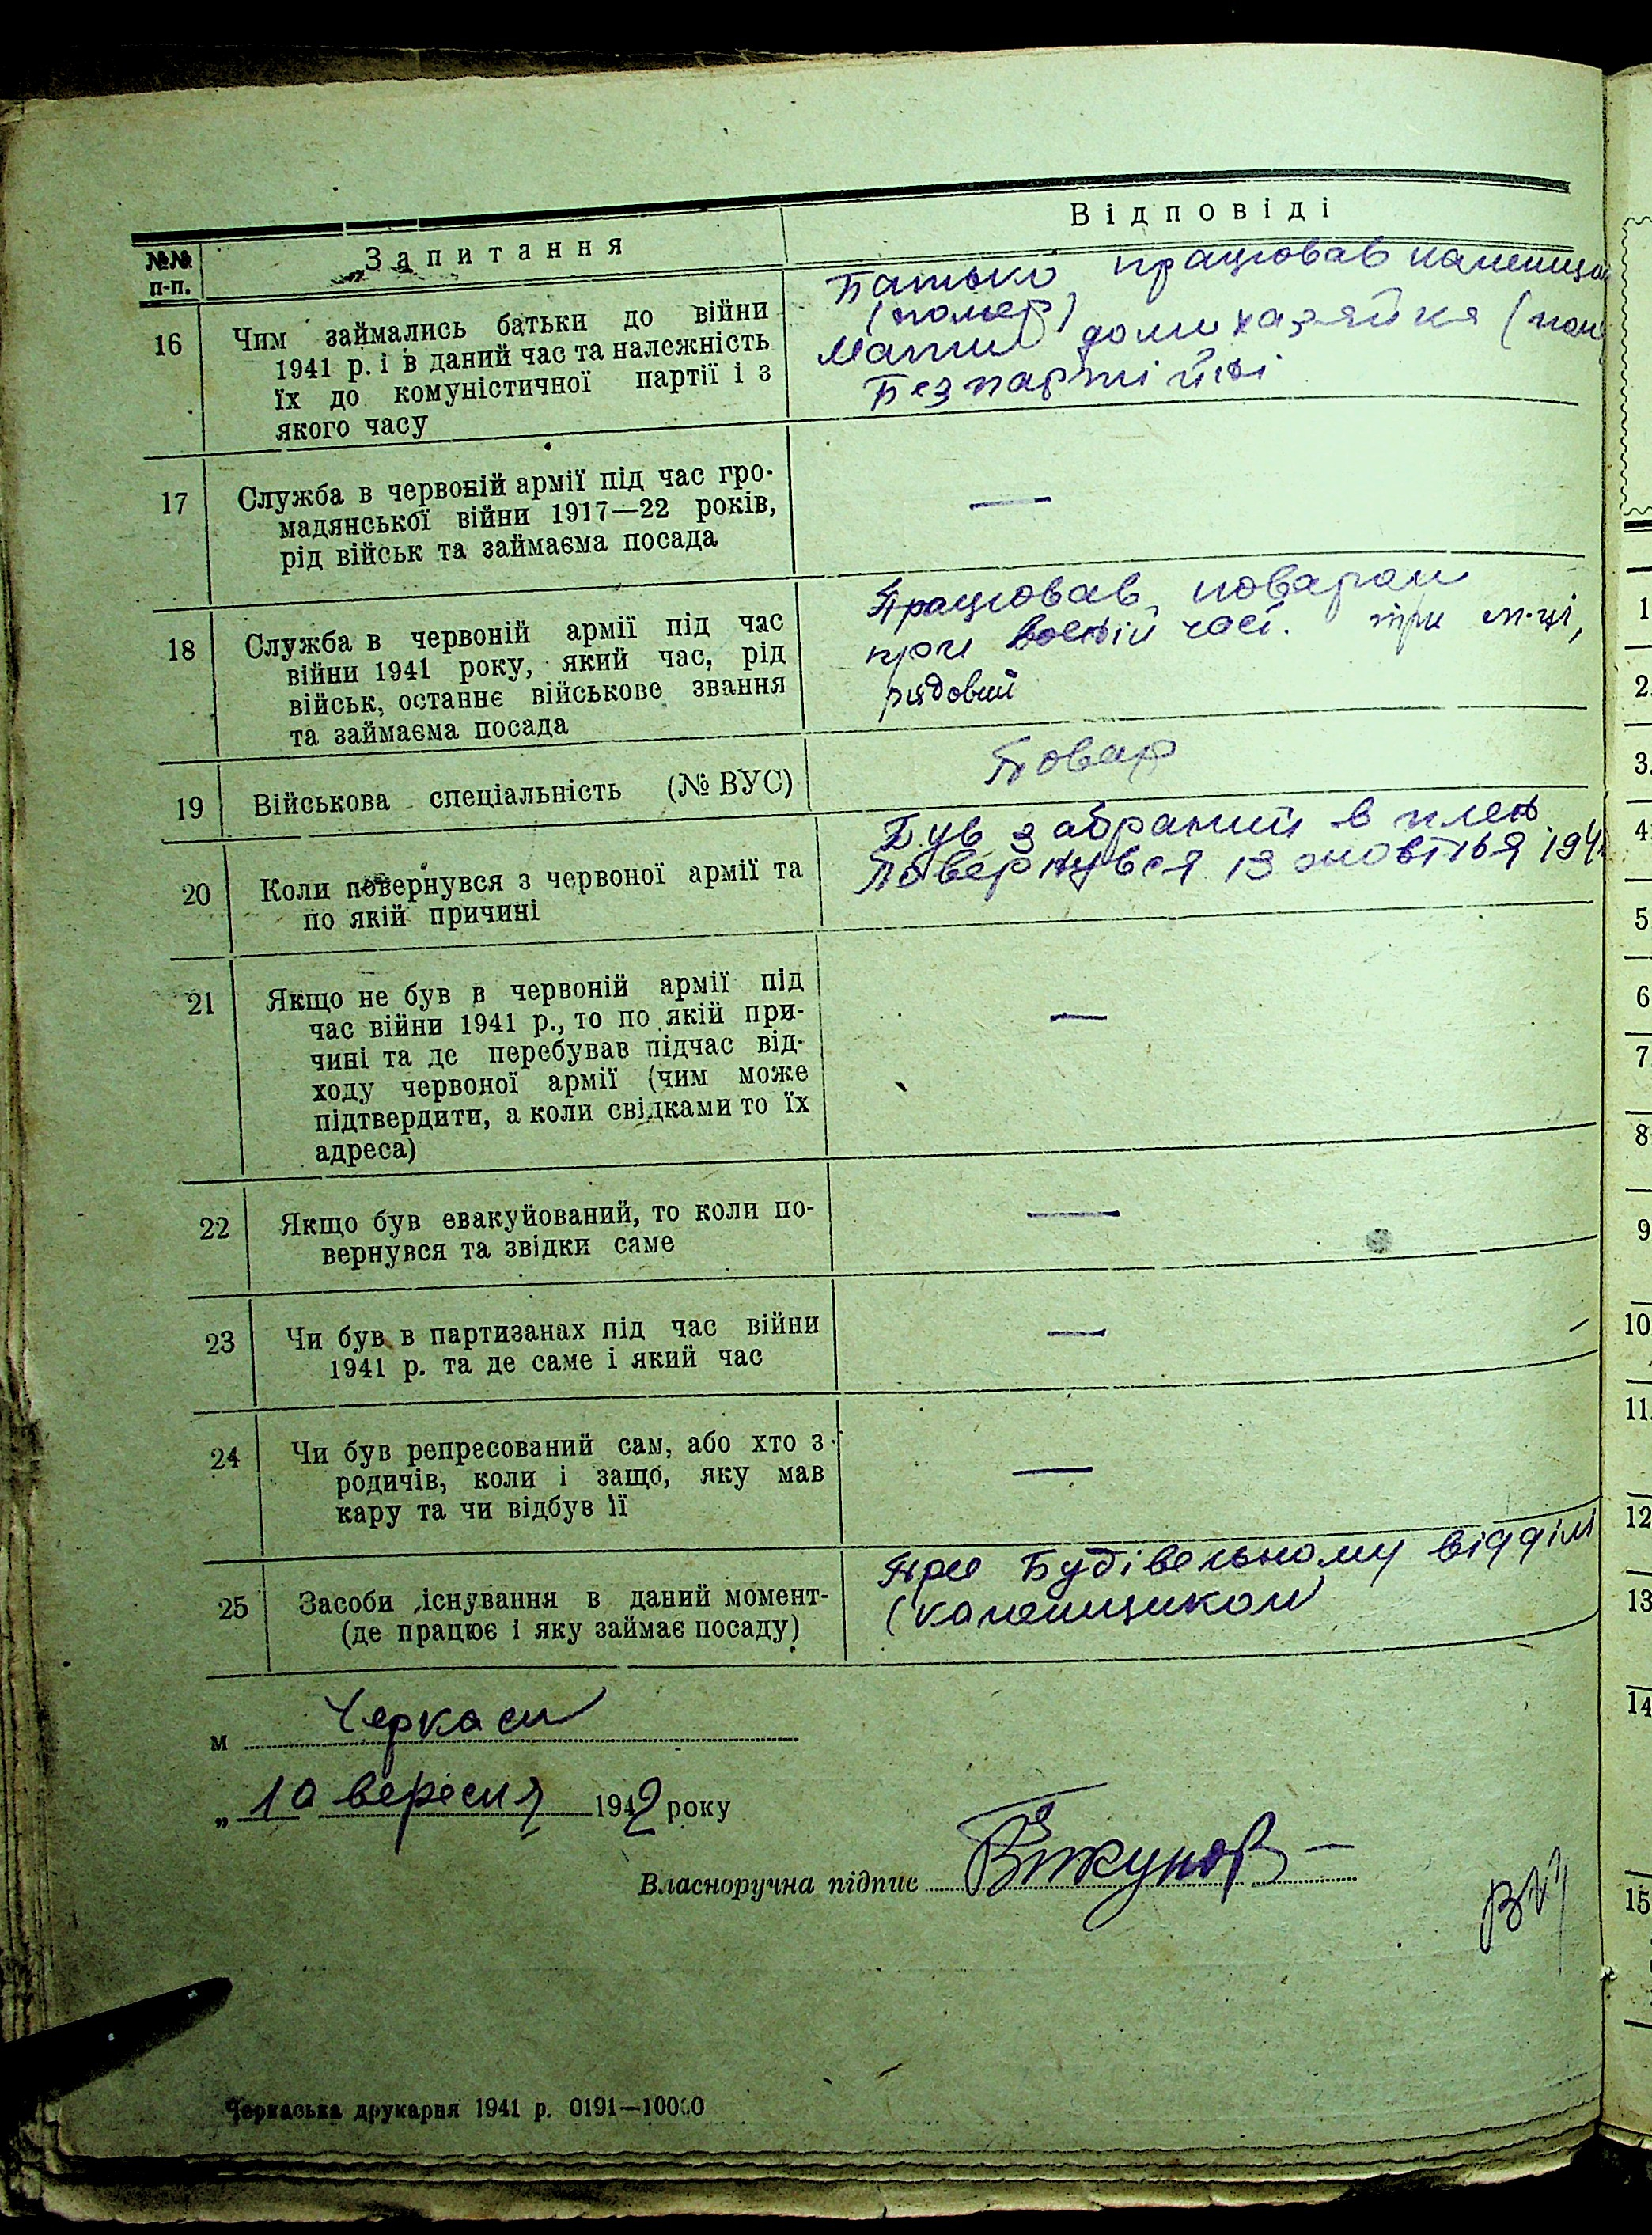 №№ п-п.
Запитання
Відповіді
16
Чим займались батьки до війни
1941 р. і в даний час та належність
їх до комуністичної партії і з
якого часу
Батько працював
(помер)
Мати домихазяйка
Безпартійні
17
Служба в червоній армії під час гро-
мадянської війни 1917—22 років,
рід військ та займаєма посада
—
18
Служба в червоній армії під час
війни 1941 року, який час, рід
військ, останнє військове звання
та займаєма посада
Працював поваром
при воєній часті. три м-ці,
рядовий
19
Військова спеціальність (№ ВУС)
Повар
20
Коли повернувся з червоної армії та
по якій причині
Був забраний в плен
Повернувся 13 жовтня
21
Якщо не був в червоній армії під
час війни 1941 р., то по якій при-
чині та де перебував підчас від-
ходу червоної армії (чим може
підтвердити, а коли свідками то їх
адреса)
—
22
Якщо був евакуйований, то коли по-
вернувся та звідки саме
—
23
Чи був в партизанах під час війни
1941 р. та де саме і який час
—
24
Чи був репресований сам, або хто з
родичів, коли і защо, яку мав
кару та чи відбув її
—
25
Засоби існування в даний момент-
(де працює і яку займає посаду)
При Будівельному відділі
(каменщиком
м Черкаси
„ 10 вересня 1942 року
Власноручна підпис
Черкаська друкарня 1941 р. 0191—10000
1
2.
3.
4.
5.
6
7.
8
9
10
11.
12
13
14
15